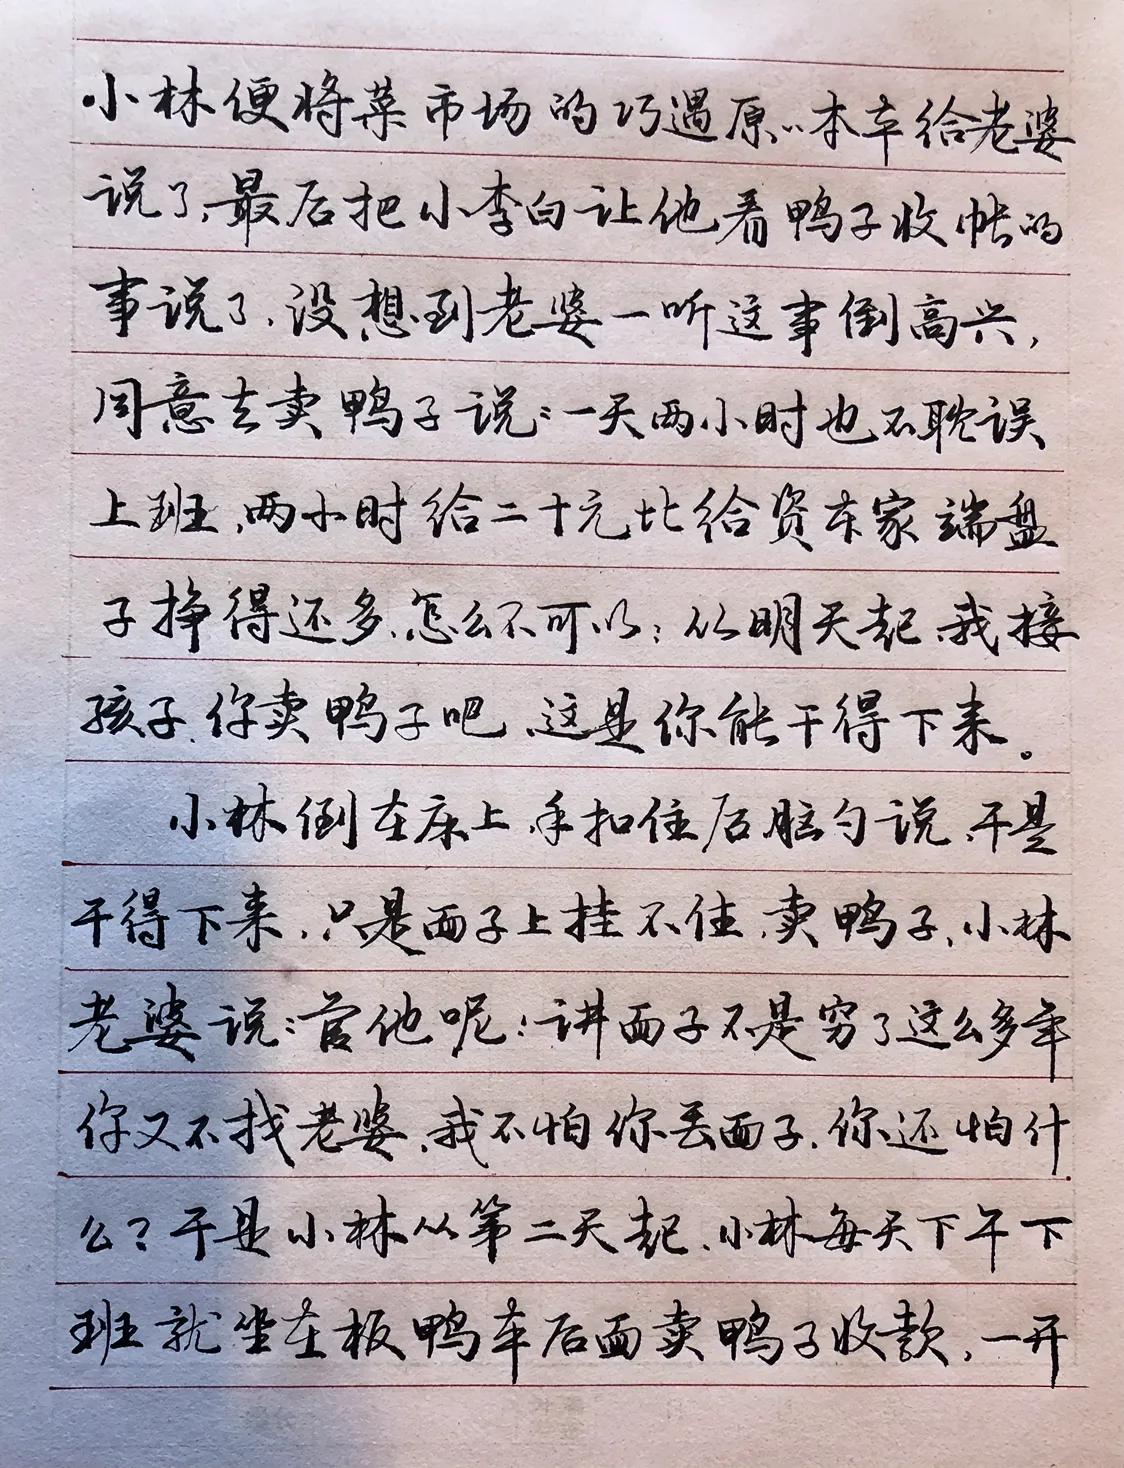 小林便将菜市场的巧遇原原本本给老婆
说了,最后把小李白让他看鸭子收帐的
事说了,没想到老婆一听这事倒高兴,
同意去卖鸭子说:一天两小时也不耽误
上班,两小时给二十元比给资本家端盘
子挣得还多、怎么不可以:从明天起、我接
孩子、你卖鸭子吧、这是你能干得下来。
小林倒在床上、手扣住后脑勺说、干是
干得下来,只是面子上挂不住、卖鸭子、小林
老婆说:管他呢:讲面子不是穷了这么多年
你又不找老婆、我不怕你丢面子、你还怕什
么?于是小林从第二天起、小林每天下午下
班就坐在板鸭车后面卖鸭子收款,一开